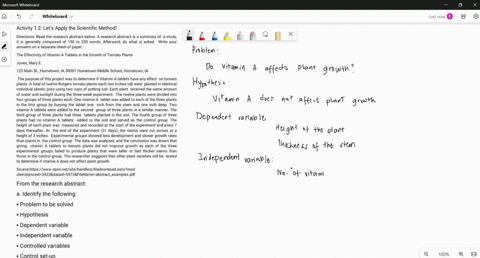 Microsoft Whiteboard
Whiteboard
Just now
Activity 1.2: Let's Apply the Scientific Method!
Directions: Read the research abstract below. A research abstract is a summary of a study,
it is generally composed of 150 to 250 words. Afterward, do what is asked. Write your
answers on a separate sheet of paper.
The Effectivity of Vitamin A Tablets in the Growth of Tomato Plants
Jones, Mary E.
123 Main St., Hometown, IA 50001 Hometown Middle School, Hometown, IA
The purpose of this project was to determine if Vitamin A tablets have any effect on tomato
plants. A total of twelve Rutgers tomato plants each two inches tall were planted in identical
individual plastic pots using two cups of potting soil. Each plant received the same amount
of water and sunlight during the three-week experiment. The twelve plants were divided into
four groups of three plants each. One vitamin A tablet was added to each of the three plants
in the first group by burying the tablet one inch from the stem and one inch deep. Two
vitamin A tablets were added to the second group of three plants in a similar manner. The
third group of three plants had three tablets planted in the soil. The fourth group of three
plants had no vitamin A tablets added to the soil and served as the control group. The
height of each plant was measured and recorded at the start of the experiment and every 7
days thereafter. At the end of the experiment (21 days), the stems were cut across at a
height of 3 inches. Experimental groups showed less development and slower growth rates
than plants in the control group. The data was analyzed, and the conclusion was drawn that
giving vitamin A tablets to tomato plants did not improve growth as each of the three
experimental groups failed to produce plants that were taller or had thicker stems than
those in the control group. The researcher suggests that other plant varieties will be tested
to determine if vitamin A does not affect plant growth.
From the research abstract:
a. Identify the following:
• Problem to be solved
• Hypothesis
• Dependent variable
• Independent variable
• Controlled variables
• Control set-up
Problem:
Do Vitamin A affects plant growth?
Hypothesis:
Vitamin A does not affect plant growth
Dependent variable
Height of the plant
Thickness of the stem
Independent variable:
No. of vitam
100%